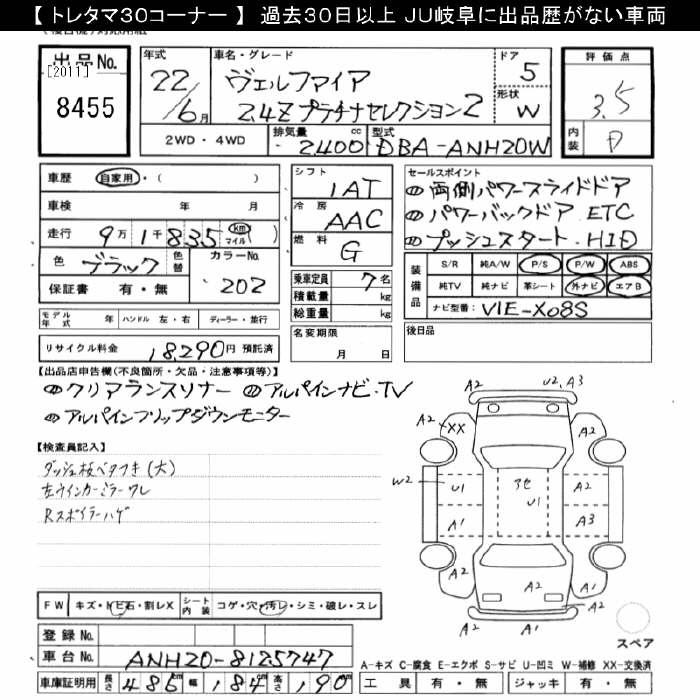 【 トレタマ30コーナー 】 過去30日以上 JU岐阜に出品歴がない車両
出品No.
[2011]
8455
年式
22/6月
車名・グレード
ヴェルファイア
2.4Z プラチナセレクション2
ドア
5
形状
W
評価点
3.5
内装
D
2WD・4WD
排気量
2400
cc
型式
DBA-ANH20W
車歴
自家用・( )
車検 年 月
走行
9万1千835
km
マイル
色
ブラック
色替
カラーNo.
202
保証書 有・無
シフト
IAT
冷房
AAC
燃料
G
乗車定員 7名
積載量 kg
総重量 kg
セールスポイント
両側パワースライドドア
パワーバックドア ETC
プッシュスタート・HID
装備品
S/R 純A/W P/S P/W ABS
純TV 純ナビ 革シート 外ナビ エアB
ナビ型番: VIE-X08S
モデル年式 年 ハンドル 左・右 ディーラー・並行
リサイクル料金 18,290円 預託済
名変期限
月 日
後日品
【出品店申告欄(不良箇所・欠品・注意事項等)】
クリアランスソナー アルパインナビ・TV
アルパインフリップダウンモニター
【検査員記入】
ダッシュ板ベタつき(大)
左ウインカーミラーワレ
Rスポイラーハゲ
A2
U2,A3
A2
XX
A2
W2
U1
アセ
U1
A2
A1
A3
A2
A1
A2
A1
スペア
FW キズ・トビ石・割レX
シート内装 コゲ・穴・汚レ・シミ・破レ・スレ
登録No.
車台No. ANH20-8125747
A-キズ C-腐食 E-エクボ S-サビ U-凹ミ W-補修 XX-交換済
車庫証明用 長さ 486 幅 184 高さ 190
工具 有・無 ジャッキ 有・無